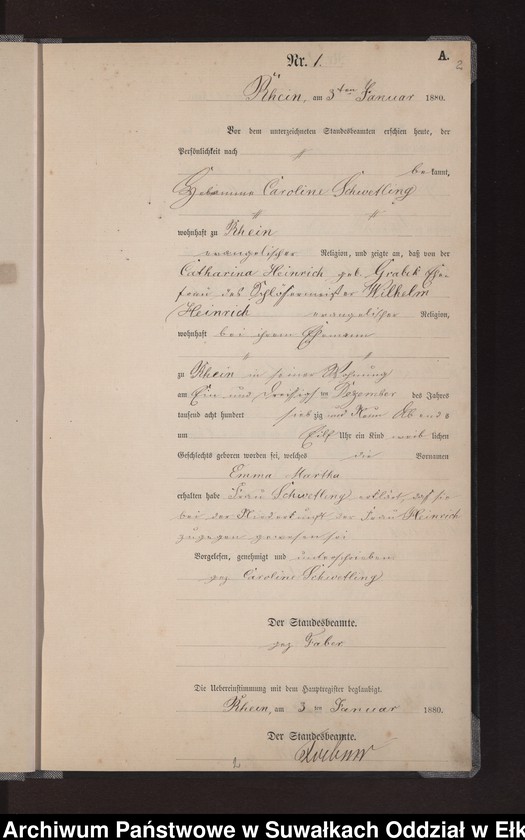 A.
2
Nr. 1.
Rhein, am 3ten Januar 1880.
Vor dem unterzeichneten Standesbeamten erschien heute, der
Persönlichkeit nach
bekannt,
Hebamme Caroline Schwetling
wohnhaft zu Rhein
evangelischer Religion, und zeigte an, daß von der
Catharina Heinrich geb. Grabek Ehe-
frau des Schlossermeister Wilhelm
Heinrich evangelischer Religion,
wohnhaft bei ihrem Ehemann
zu Rhein in seiner Wohnung
am Ein und dreißigsten Dezember des Jahres
tausend acht hundert siebzig und Neun Abends
um Eilf Uhr ein Kind weiblichen
Geschlechts geboren worden sei, welches die Vornamen
Emma Martha
erhalten habe Frau Schwetling erklärt, daß sie
bei der Niederkunft der Frau Heinrich
zugegen gewesen sei
Vorgelesen, genehmigt und unterschrieben
gez Caroline Schwetling
Der Standesbeamte.
gez Faber
Die Uebereinstimmung mit dem Hauptregister beglaubigt.
Rhein, am 3 ten Januar 1880.
Der Standesbeamte.
Archiwum Państwowe w Suwałkach Oddział w Ełk